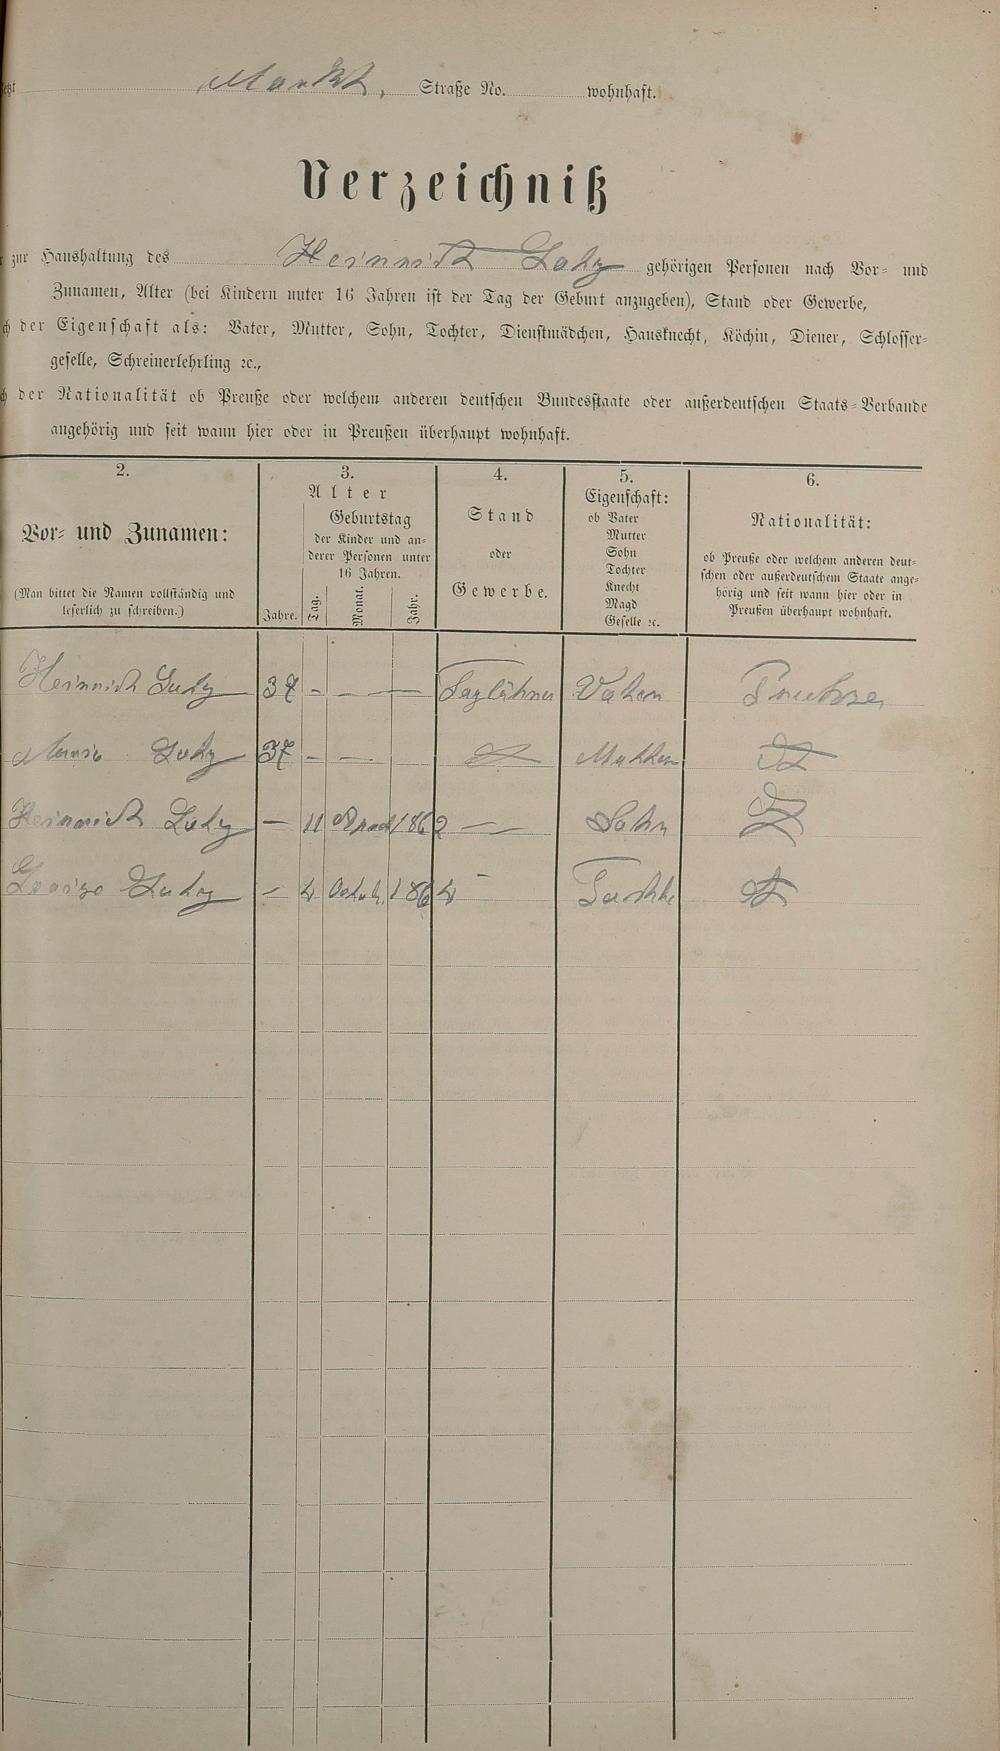 Markt, Straße No. wohnhaft.
Verzeichniß
zur Haushaltung des Heinrich gehörigen Personen nach Vor- und
Zunamen, Alter (bei Kindern unter 16 Jahren ist der Tag der Geburt anzugeben), Stand oder Gewerbe,
der Eigenschaft als: Vater, Mutter, Sohn, Tochter, Dienstmädchen, Hausknecht, Köchin, Diener, Schlosser-
geselle, Schreinerlehrling ꝛc.,
der Nationalität ob Preuße oder welchem anderen deutschen Bundesstaate oder außerdeutschen Staats-Verbande
angehörig und seit wann hier oder in Preußen überhaupt wohnhaft.
2.
Vor- und Zunamen:
(Man bittet die Namen vollständig und
leserlich zu schreiben.)
3.
Alter
Geburtstag
der Kinder und an-
derer Personen unter
16 Jahren.
Jahre. Tag. Monat. Jahr.
4.
Stand
oder
Gewerbe.
5.
Eigenschaft:
ob Vater
Mutter
Sohn
Tochter
Knecht
Magd
Geselle ꝛc.
6.
Nationalität:
ob Preuße oder welchem anderen deut-
schen oder außerdeutschem Staate ange-
hörig und seit wann hier oder in
Preußen überhaupt wohnhaft.
Heinrich 37 - — — Taglöhner Vater Preuße
Maria 37 - — Mutter
Heinrich — 11 1862 — Sohn
Louise - 4 Octob. 1864 - Tochter